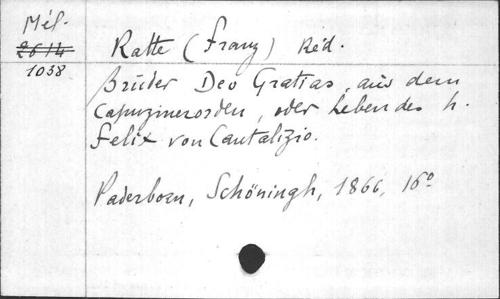 Mél.
2614
1038
Ratte (Franz) Réd.
Bruder Deo Gratias, aus dem
Capuzinerorden, oder Leben des h.
Felix von Cantalizio.
Paderborn, Schöningh, 1866, 16°